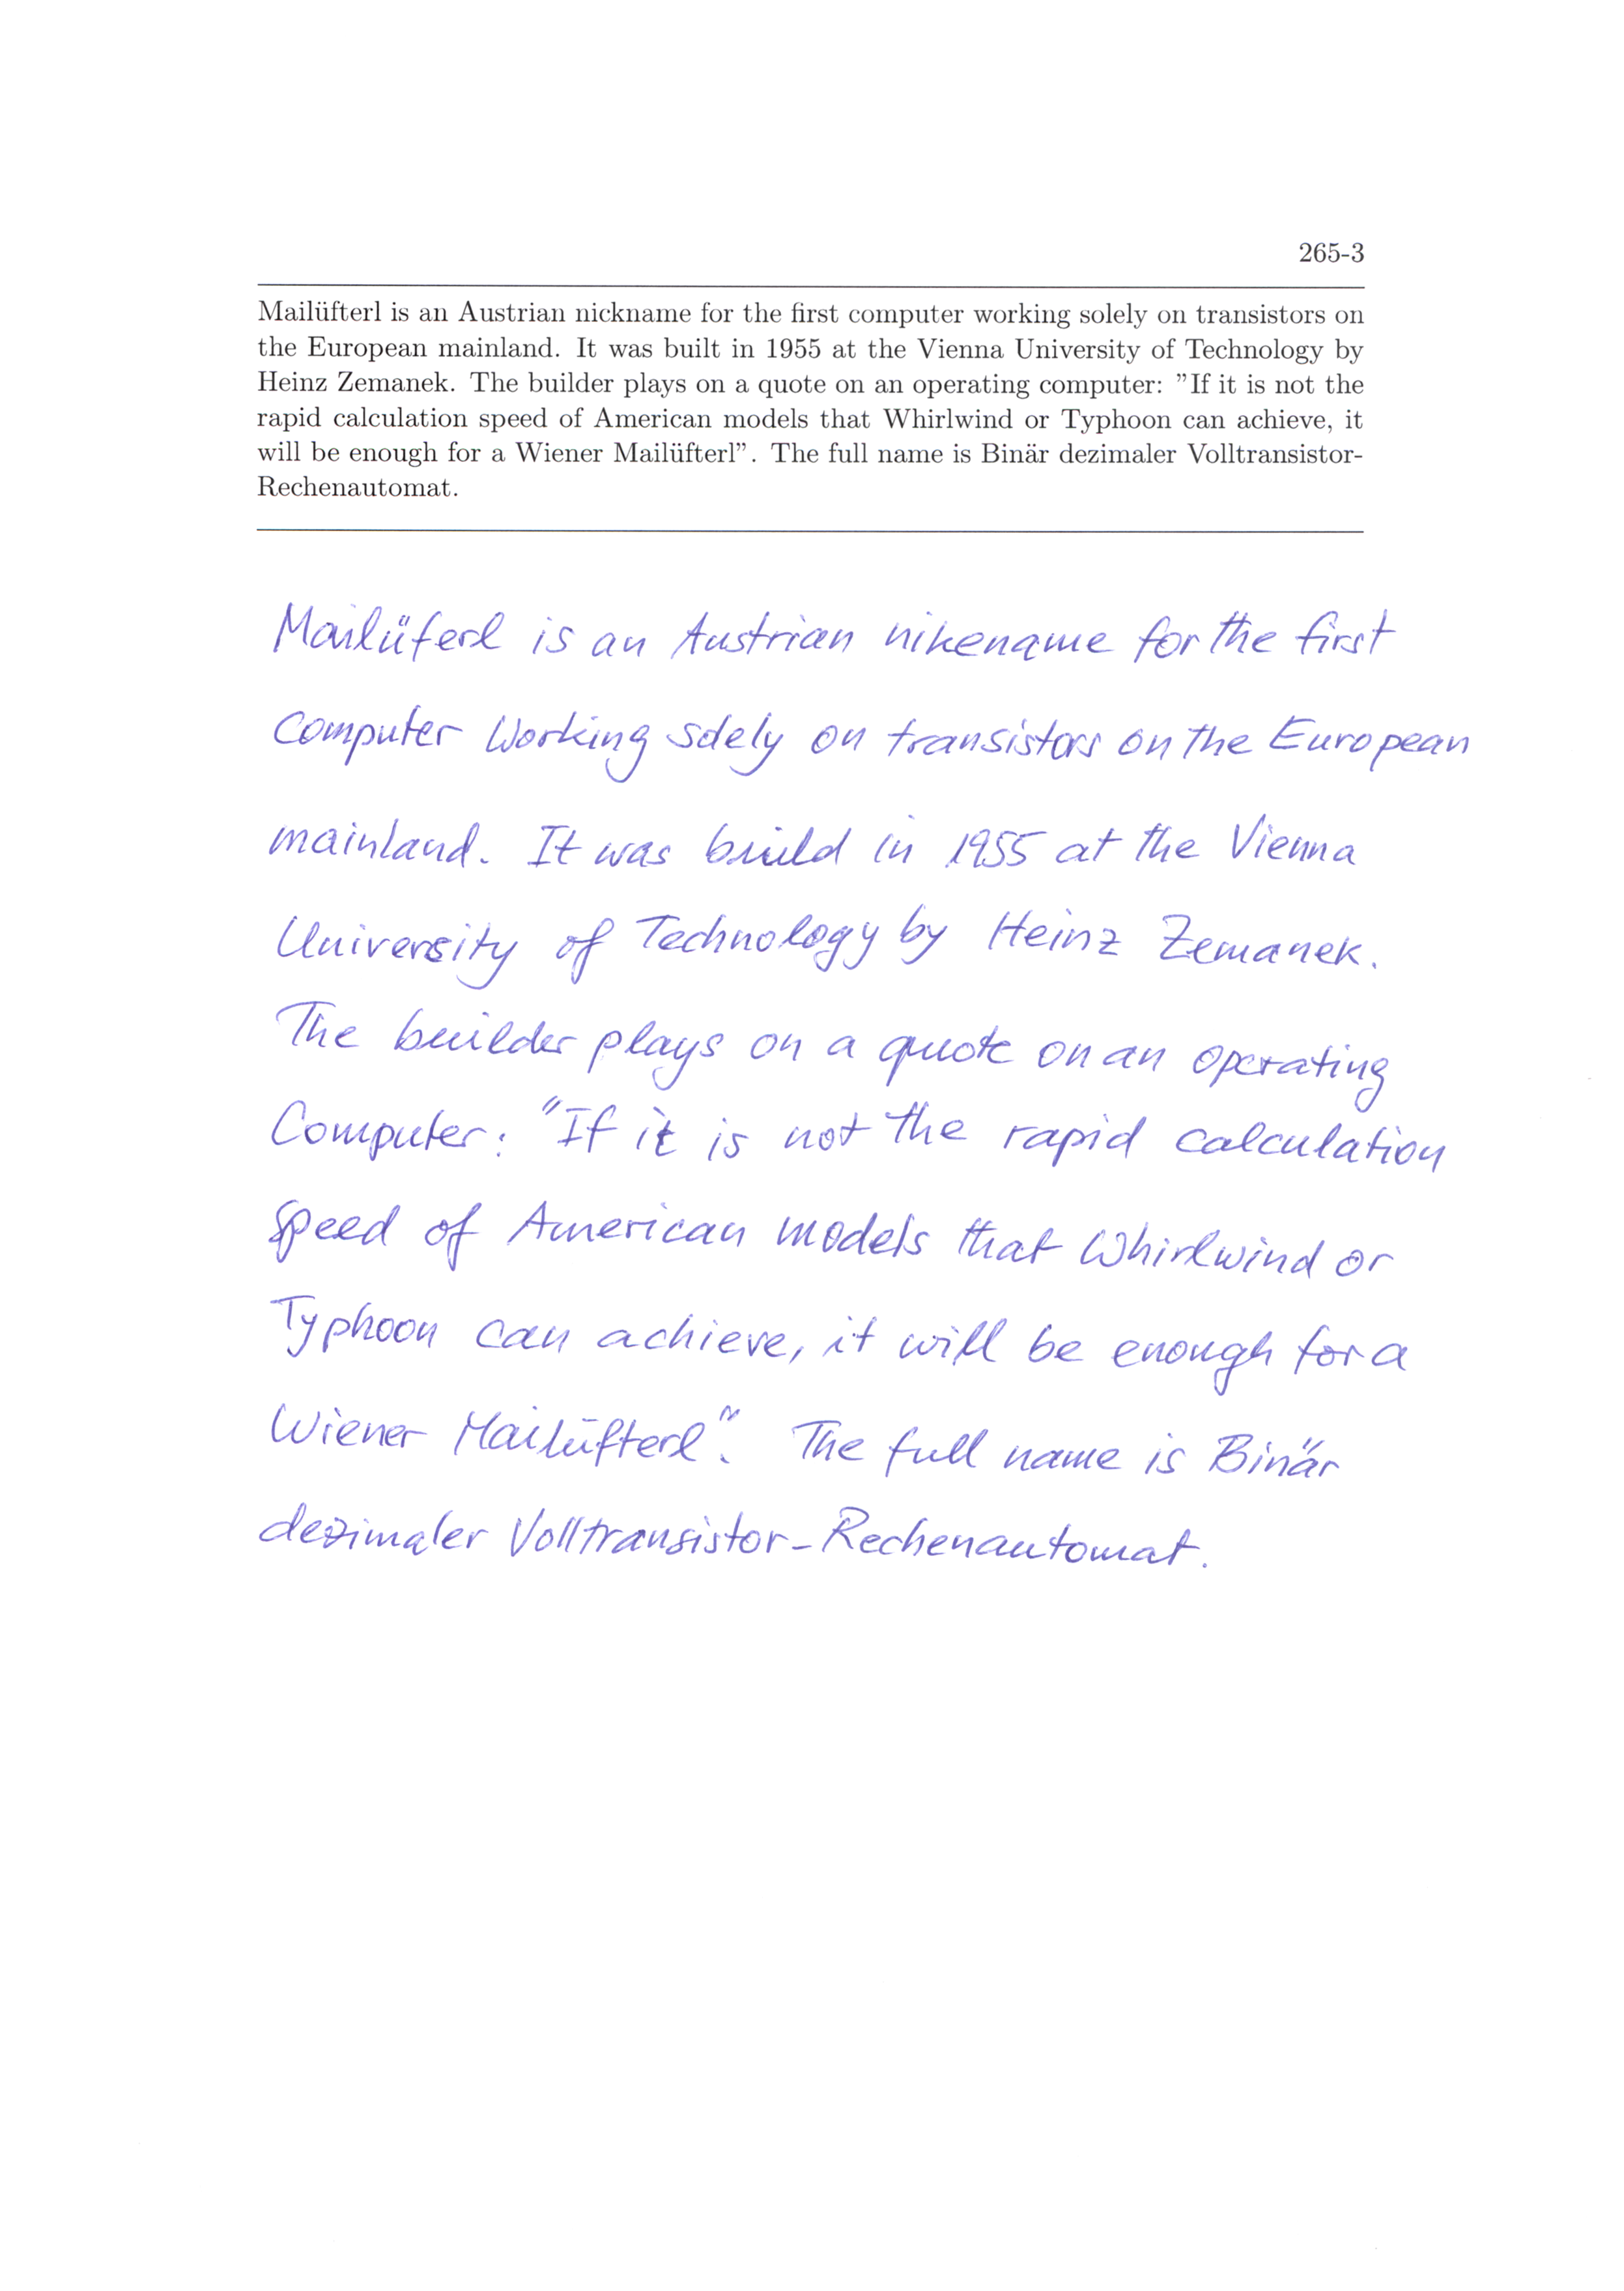 265-3
Mailüfterl is an Austrian nickname for the first computer working solely on transistors on
the European mainland. It was built in 1955 at the Vienna University of Technology by
Heinz Zemanek. The builder plays on a quote on an operating computer: ”If it is not the
rapid calculation speed of American models that Whirlwind or Typhoon can achieve, it
will be enough for a Wiener Mailüfterl”. The full name is Binär dezimaler Volltransistor-
Rechenautomat.
Mailüferl is an Austrian nikename for the first
Computer Working solely on transistors on the European
mainland. It was build in 1955 at the Vienna
University of Technology by Heinz Zemanek.
The builder plays on a quote on an operating
Computer: "If it is not the rapid calculation
Speed of American models that Whirlwind or
Typhoon can achieve, it will be enough for a
Wiener Mailüfterl". The full name is Binär
dezimaler Volltransistor-Rechenautomat.